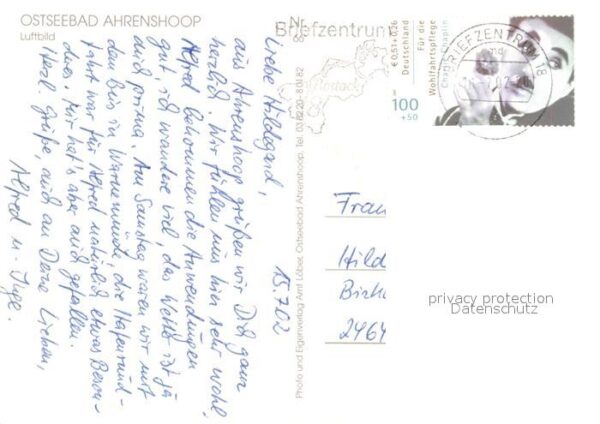 OSTSEEBAD AHRENSHOOP
Luftbild
15.7.02
Liebe Hildegard,
aus Ahrenshoop grüßen wir Dich ganz
herzlich. Wir fühlen uns hier sehr wohl,
Alfred bekommen die Anwendungen
gut, ich wandere viel, das Wetter ist ja
auch prima. Am Samstag waren wir mit
dem Bus in Warnemünde, die Hafenrund-
fahrt war für Alfred natürlich etwas Beson-
deres. Mir hat's aber auch gefallen.
Herzl. Grüße, auch an Deine Lieben,
Alfred u. Inge.
Photo und Eigenverlag Arnt Löber, Ostseebad Ahrenshoop, Tel. 038220-80182
Nr. 
Briefzentrum
Rostock
BRIEFZENTRUM 18
100
+50
€ 0,51+0,26
Deutschland
Für die
Wohlfahrtspflege
Charlie Chaplin
Frau
Hild
Birk
2464
privacy protection
Datenschutz